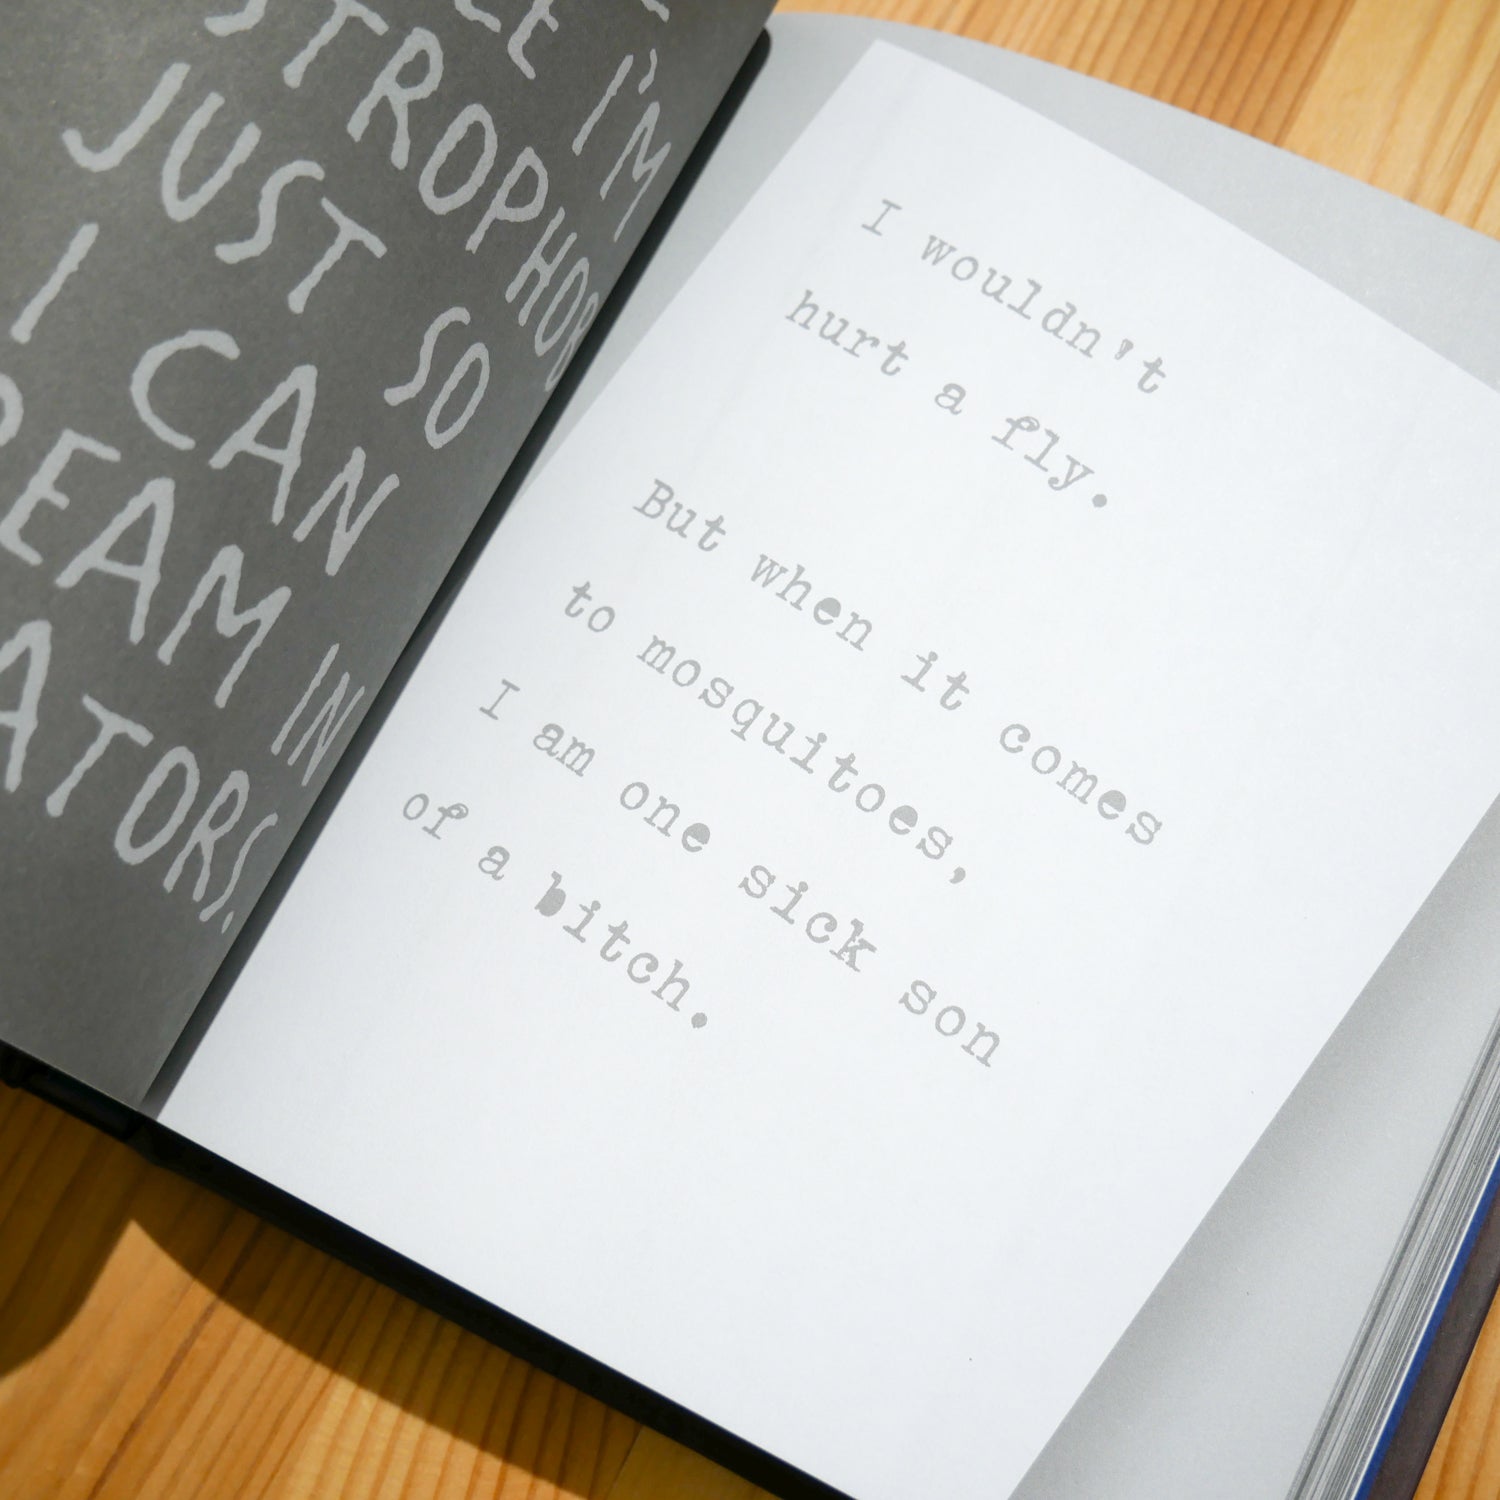 I'M
JUST SO
I CAN
IN
I wouldn't
hurt a fly.
But when it comes
to mosquitoes,
I am one sick son
of a bitch.